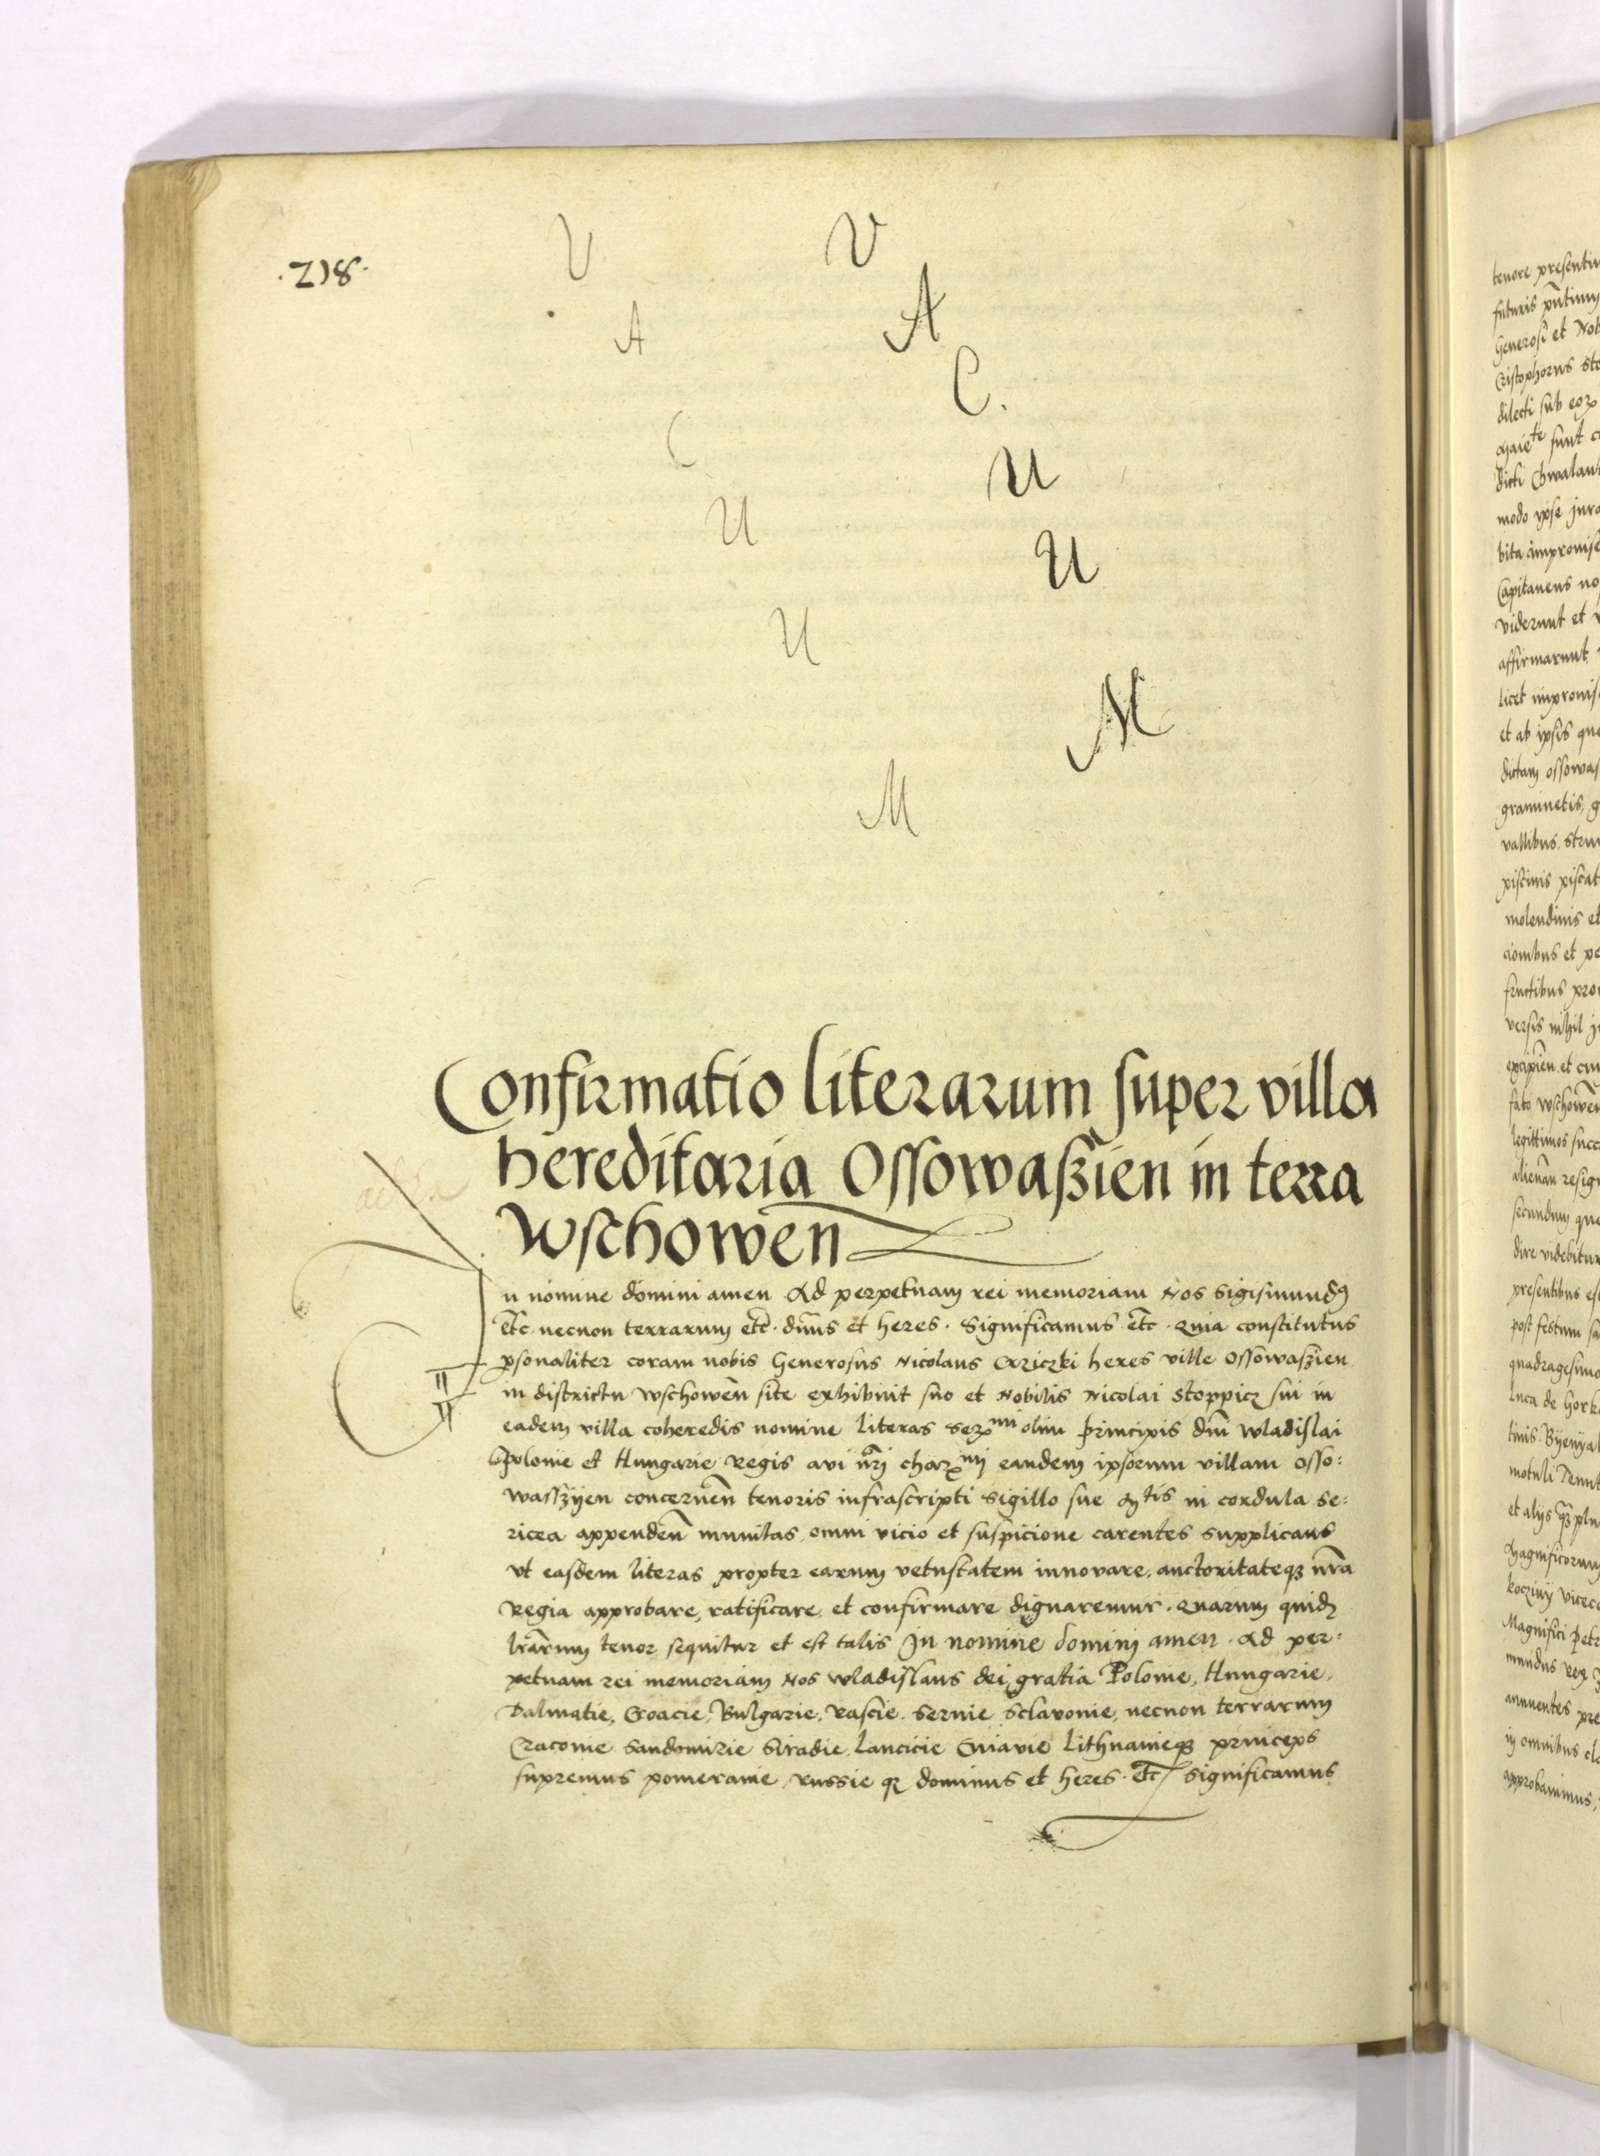 .218.
V V
A A
C C.
U U
U U
M M
Confirmatio literarum super villa
hereditaria Ossowaszien in terra
Wschowen̄
In nomine domini amen Ad perpetuam rei memoriam Nos Sigismundꝰ
etc̄ necnon terrarum etc̄. dn̄us et heres. Significamus etc̄. Quia constitutus
ꝑsonaliter coram nobis Generosus Nicolaus heres ville Ossowaszien
in districtu Wschowen̄ site exhibuit suo et Nobilis Nicolai Stoppicz sui in
eadem villa coheredis nomine literas olim Principis dn̄i Wladislai
Polonie et Hungarie Regis avi nr̄i eandem ipsorum villam Osso:
wasszyen concernen̄ tenoris infrascripti sigillo sue in cordula se:
ricea appenden̄ munitas, omni vicio et suspicione carentes supplicans
ut easdem literas propter earum vetustatem innovare, auctoritateqꝫ nr̄a
Regia approbare, ratificare, et confirmare dignaremur. Quarum quidꝫ
lr̄arum tenor sequitur et est talis In nomine dominj amen. Ad per:
petuam rei memoriam Nos Wladislaus dei gratia Polonie, Hungarie,
Dalmatie, Croacie, Bulgarie, Rascie. Servie Sclavonie, necnon terrarum
Cracovie Sandomirie Siradie, Lancicie Cuiavie Lithuanieqꝫ princeps
supremus pomeranie, Russie qꝫ dominus et heres. etc̄ significamus
tenore
futuris
Generosi et
Cristophorus
dilecti sub
sunt
dicti
modo ipse
bita
Capitaneus
viderunt et
affirmarunt
licet
et ab ipsis
dictam
graminetis,
vallibus.
piscinis
molendinis et
cionibus et
fructibus
versis nihil
et
legittimos
secundum
dire videbitur
presentibus
post festum
quadragesimo
Luca de
et alijs
Magnifici
mundus Rex
annuentes
in omnibus
approbavimus,